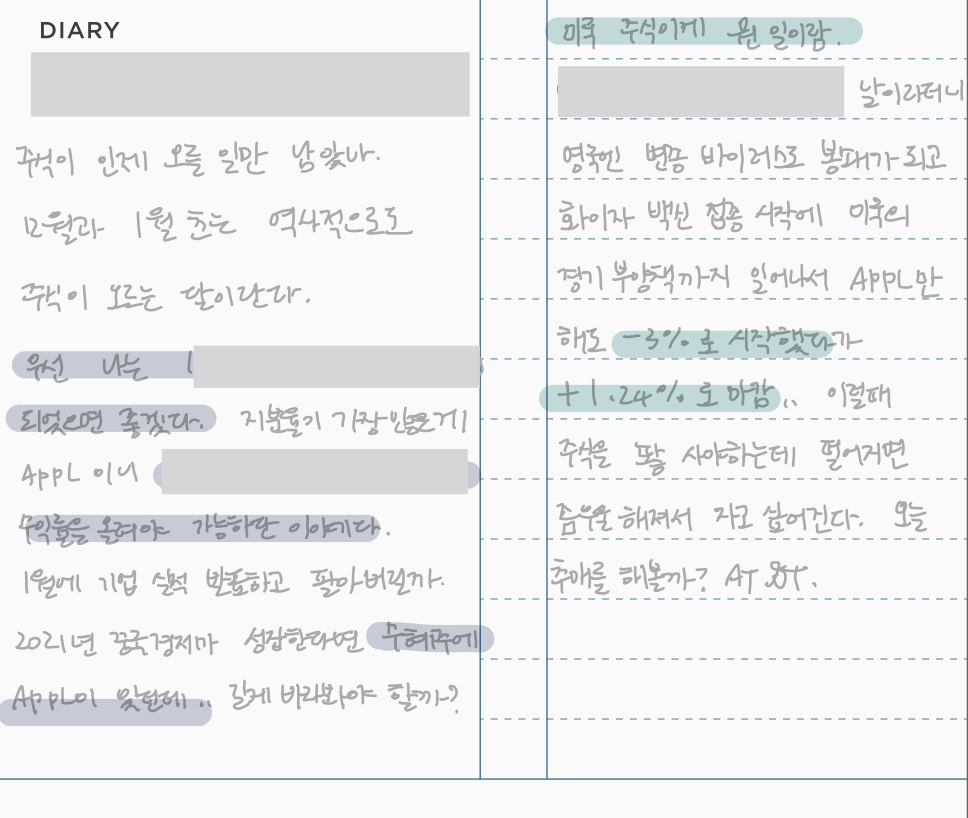 DIARY
주식이 인제 오를 일만 남았나.
12월과 1월 초는 역사적으로도
주식이 오르는 달이란다.
우선 나는
되었으면 좋겠다. 지분율이 가장 많은게
AppL 이니
수익률을 올려야 가능하단 이야기다.
1월에 기업 실적 발표하고 팔아버릴까.
2021년 중국경제마 성장한다면 수혜주에
AppL이 있던데.. 길게 바라봐야 할까?
미국 주식이게 웬 일이람.
날이라더니
영국엔 변종 바이러스로 봉쇄가 되고
화이자 백신 접종 시작에 미국의
경기 부양책까지 일어나서 APPL만
해도 -3%로 시작했다가
+1.24%로 마감.. 이럴때
주식을 딱 사야하는데 떨어지면
좀 우울해져서 자고 싶어진다. 오늘
추매를 해볼까? AT&T.